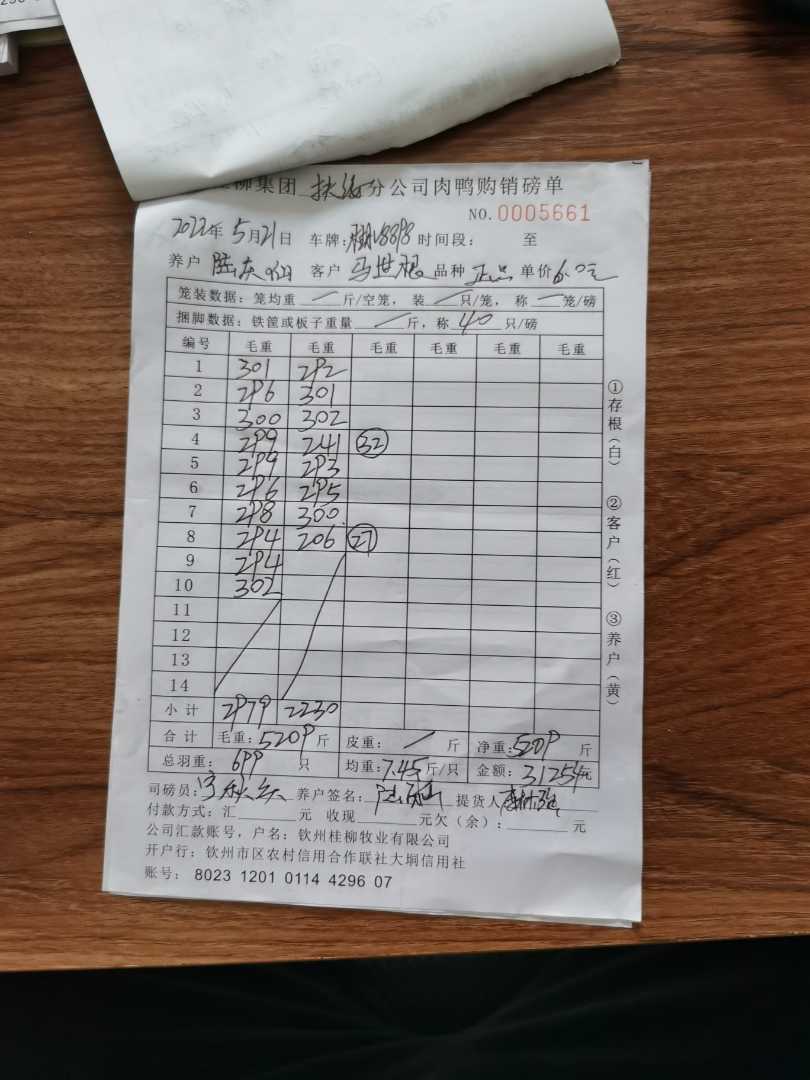 柳集团 扶绥 分公司肉鸭购销磅单
NO.0005661
2022年5月21日 车牌: 时间段: 至
养户 陆庆 客户 马世根 品种 正品 单价 6.0元
笼装数据: 笼均重 / 斤/空笼, 装 / 只/笼, 称 一 笼/磅
捆脚数据: 铁筐或板子重量 / 斤, 称 40 只/磅
编号 毛重 毛重 毛重 毛重 毛重 毛重
1 301 292
2 296 301
3 300 302
4 299 241 32
5 299 293
6 296 295
7 298 300
8 294 206 27
9 294
10 302
11
12
13
14
小计 2979 2230
合计 毛重: 5209 斤 皮重: / 斤 净重: 5209 斤
总羽重: 699 只 均重: 7.45 斤/只 金额: 31254元
司磅员: 养户签名: 提货人
付款方式: 汇 元 收现 元欠(余): 元
公司汇款账号, 户名: 钦州桂柳牧业有限公司
开户行: 钦州市区农村信用合作联社大垌信用社
账号: 8023 1201 0114 4296 07
①存根(白)
②客户(红)
③养户(黄)